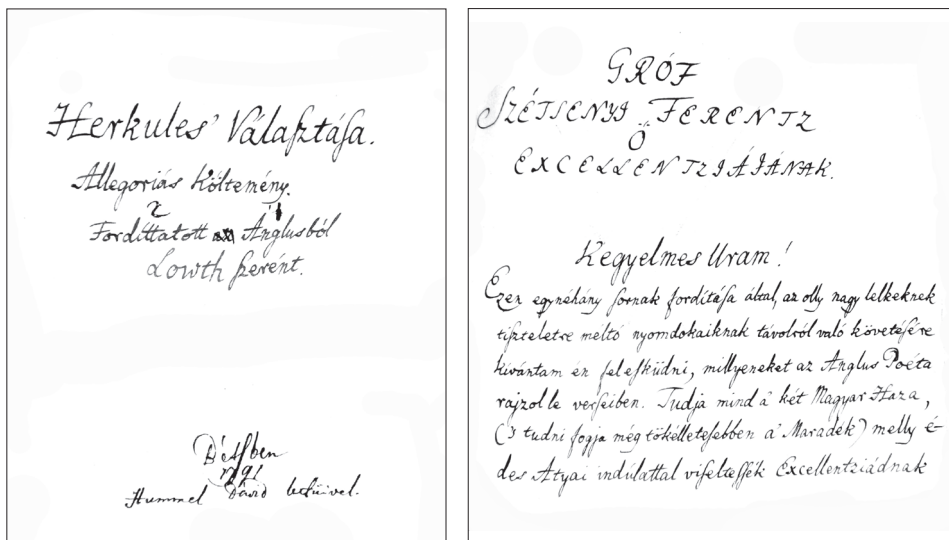 Herkules' Válaſztáſa.
Allegoriás Költemény.
Fordíttatott Ánglusból
Lowth ſzerént.
Bétſben
1791
Hummel Dávid betűivel.
GRÓF
SZÉTSENYI FERENTZ
Ő
EXCELLENTZIÁJÁNAK.
Kegyelmes Uram!
Ezen egynéhány ſornak fordítáſa által, az olly nagy lelkeknek
tiſzteletre meltó nyomdokaiknak távolról való követéſére
kivántam én feleſküdni, millyeneket az Anglus Poéta
rajzol le verſeiben. Tudja mind a' két Magyar Haza,
('s tudni fogja még tökélleteſebben a' Maradék) melly é-
des Atyai indúlattal viſelteſſék Excellentziádnak